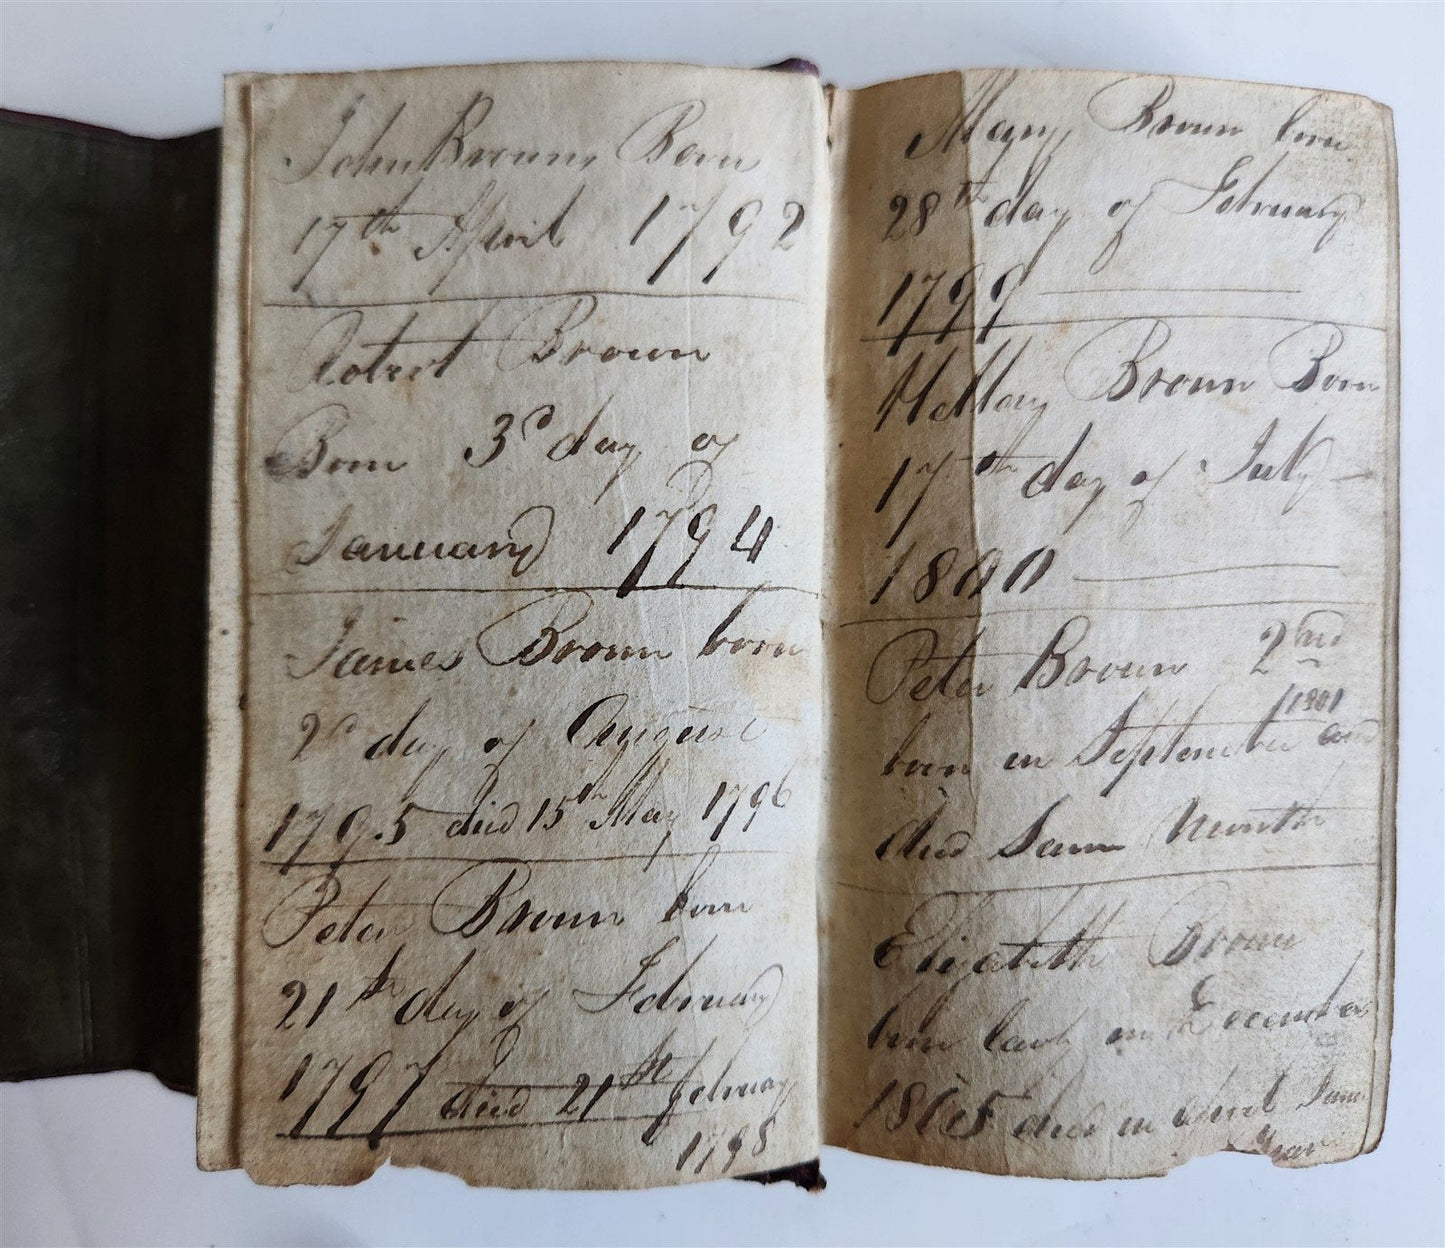 John Brown Born
17th April 1792
Robert Brown
Born 3d day of
January 1794
James Brown born
2d day of August
1795 died 15th May 1796
Peter Brown born
21st day of February
1797 died 21st February
1798
Mary Brown born
28th day of February
1799
Brown Born
17th day of July
1800
Peter Brown 2nd
1801
born in September and
died Same Month
Elizabeth Brown
born early in December
1805 died in Same
Year